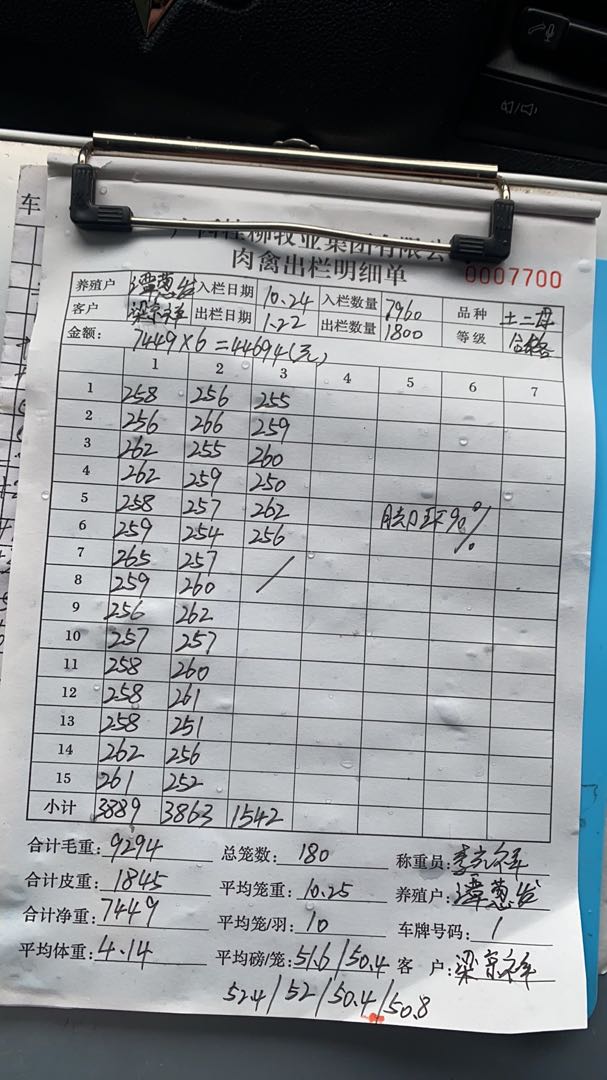 广西桂柳牧业集团有限公
肉禽出栏明细单
0007700
养殖户 入栏日期 10.24 入栏数量 7960 品种 土二母
客户 梁京祥 出栏日期 1.22 出栏数量 1800 等级 合格
金额: 7449×6=44694(元)
1 2 3 4 5 6 7
1 258 256 255
2 256 266 259
3 262 255 260
4 262 259 250
5 258 257 262
脚环90%
6 259 254 256
7 265 257 /
8 259 260
9 256 262
10 257 257
11 258 260
12 258 261
13 258 251
14 262 256
15 261 252
小计 3889 3863 1542
合计毛重: 9294 总笼数: 180 称重员:
合计皮重: 1845 平均笼重: 10.25 养殖户:
合计净重: 7449 平均笼/羽: 10 车牌号码: 1
平均体重: 4.14 平均磅/笼: 51.6/50.4 客户: 梁京祥
52.4/52/50.4/50.8
车